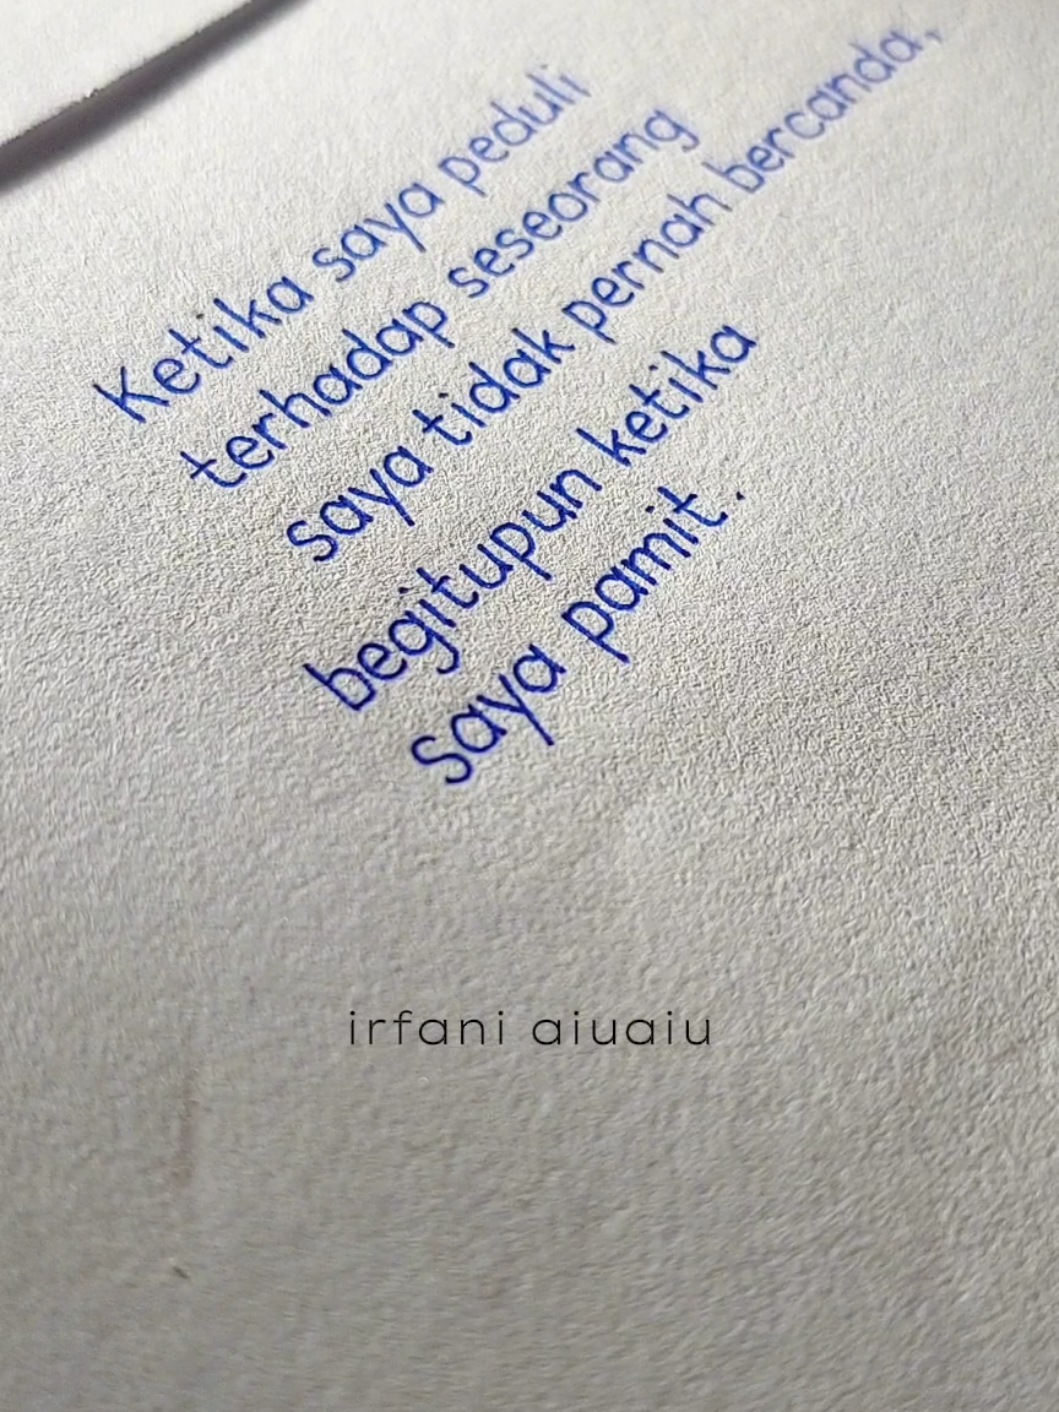 Ketika saya peduli
terhadap seseorang
saya tidak pernah bercanda,
begitupun ketika
saya pamit.
irfani aiuaiu